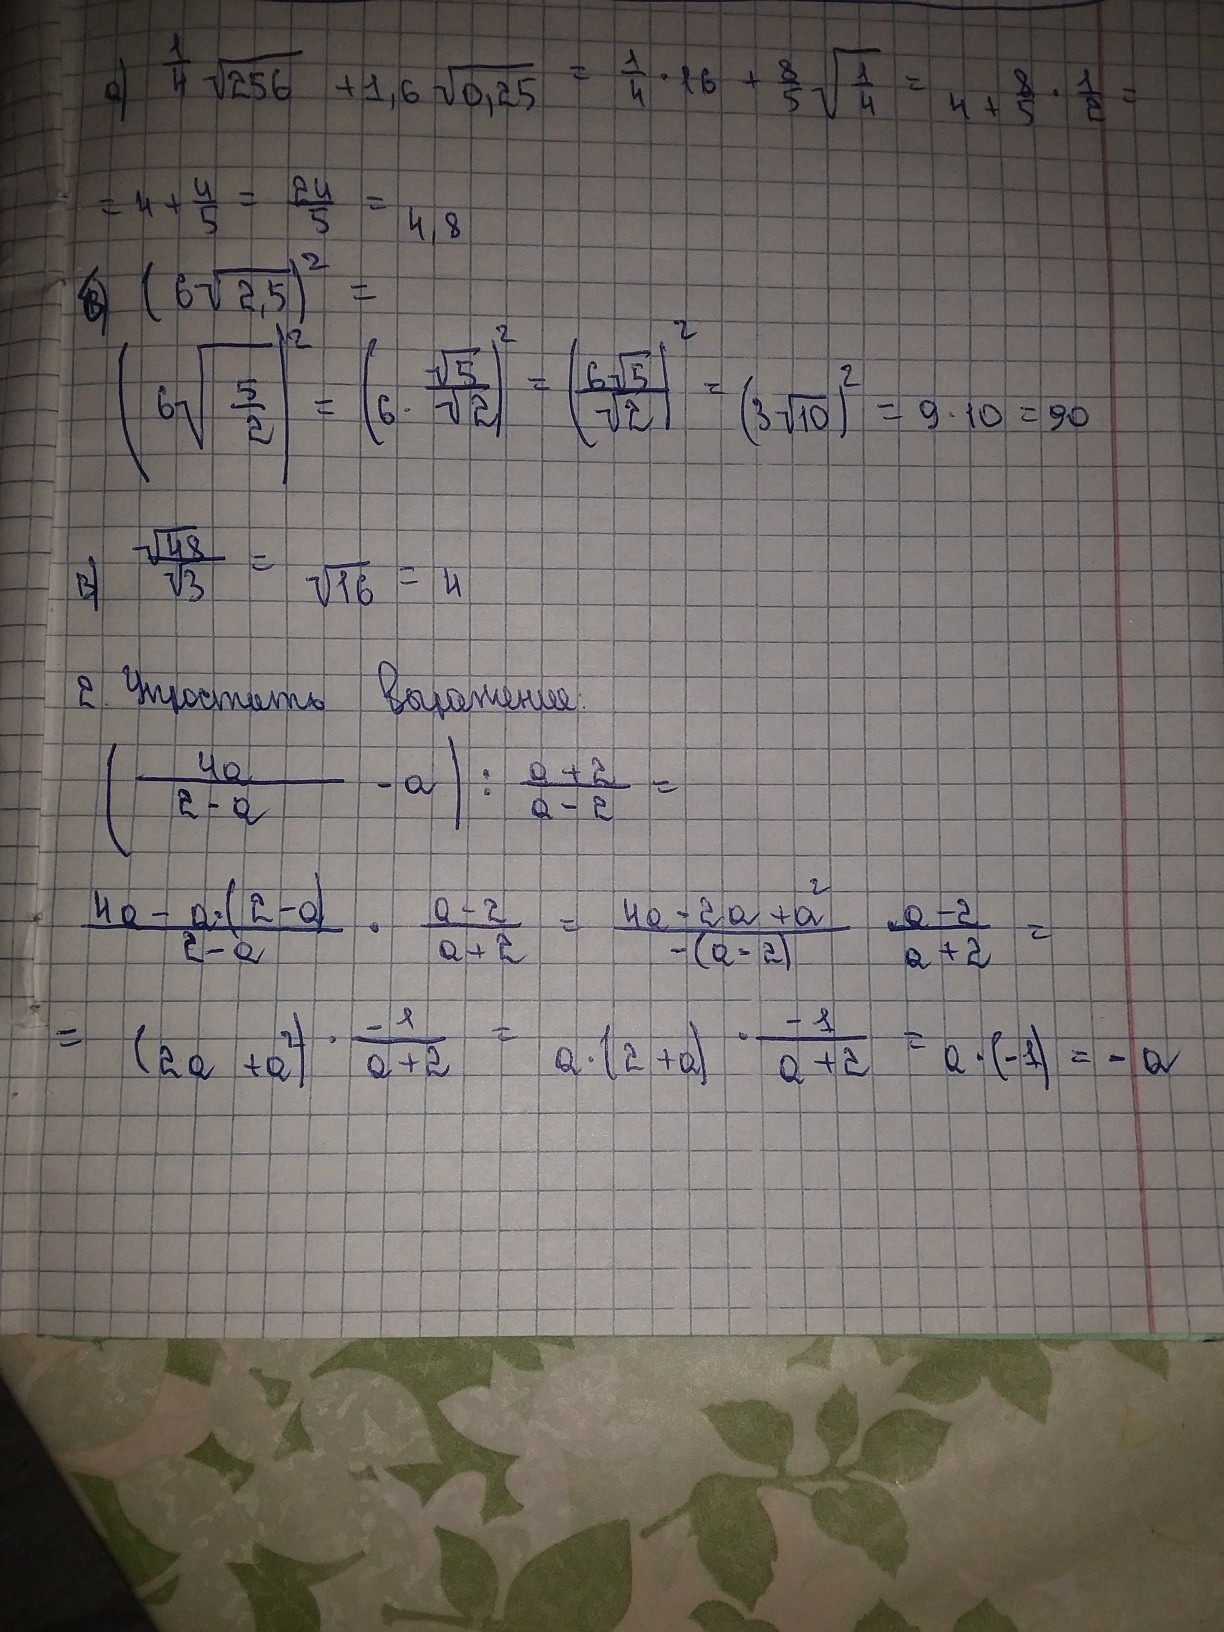 а) 1/4 √256 + 1,6 √0,25 = 1/4 · 16 + 8/5 √1/4 = 4 + 8/5 · 1/2 =
= 4 + 4/5 = 24/5 = 4,8
б) (6√2,5)² =
(6√5/2)² = (6 · √5/√2)² = (6√5/√2)² = (3√10)² = 9 · 10 = 90
в) √48/√3 = √16 = 4
2. Упростить выражение:
(4a/2-a - a) : a+2/a-2 =
4a - a·(2-a)/2-a · a-2/a+2 = 4a-2a+a²/-(a-2) · a-2/a+2 =
= (2a+a²) · -1/a+2 = a·(2+a) · -1/a+2 = a·(-1) = -a